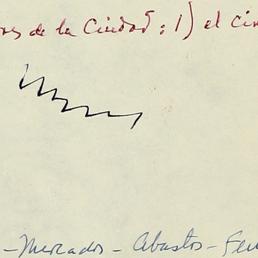 de la Ciudad: 1) el
- Mercados - Abastos -